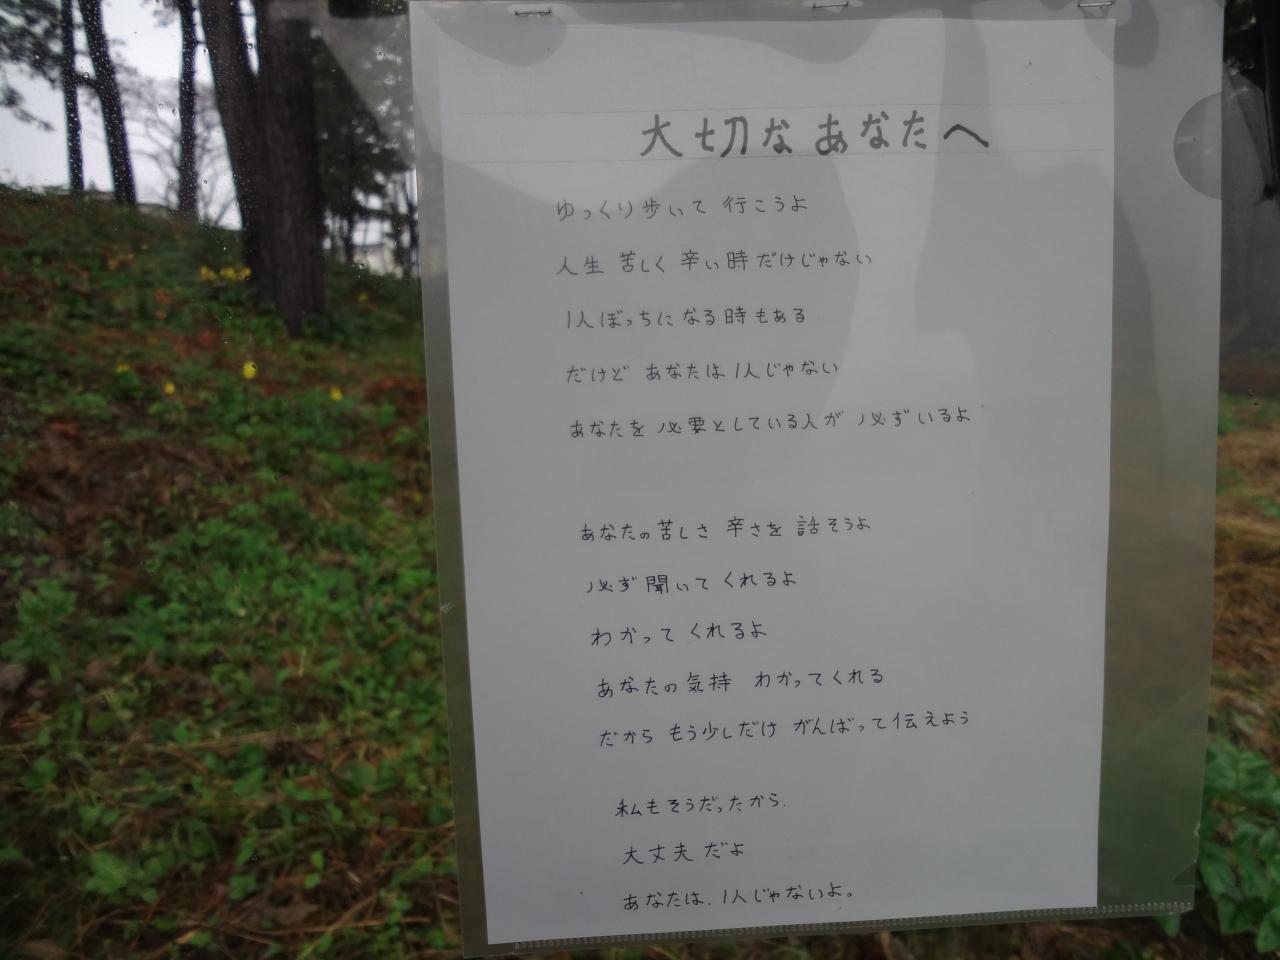 大切なあなたへ
ゆっくり歩いて 行こうよ
人生 苦しく 辛い時だけじゃない
1人ぼっちになる時もある
だけど あなたは1人じゃない
あなたを 必要としている人が 必ずいるよ
あなたの苦しさ 辛さを 話そうよ
必ず聞いてくれるよ
わかってくれるよ
あなたの気持 わかってくれる
だから もう少しだけ がんばって伝えよう
私もそうだったから.
大丈夫だよ
あなたは、1人じゃないよ。